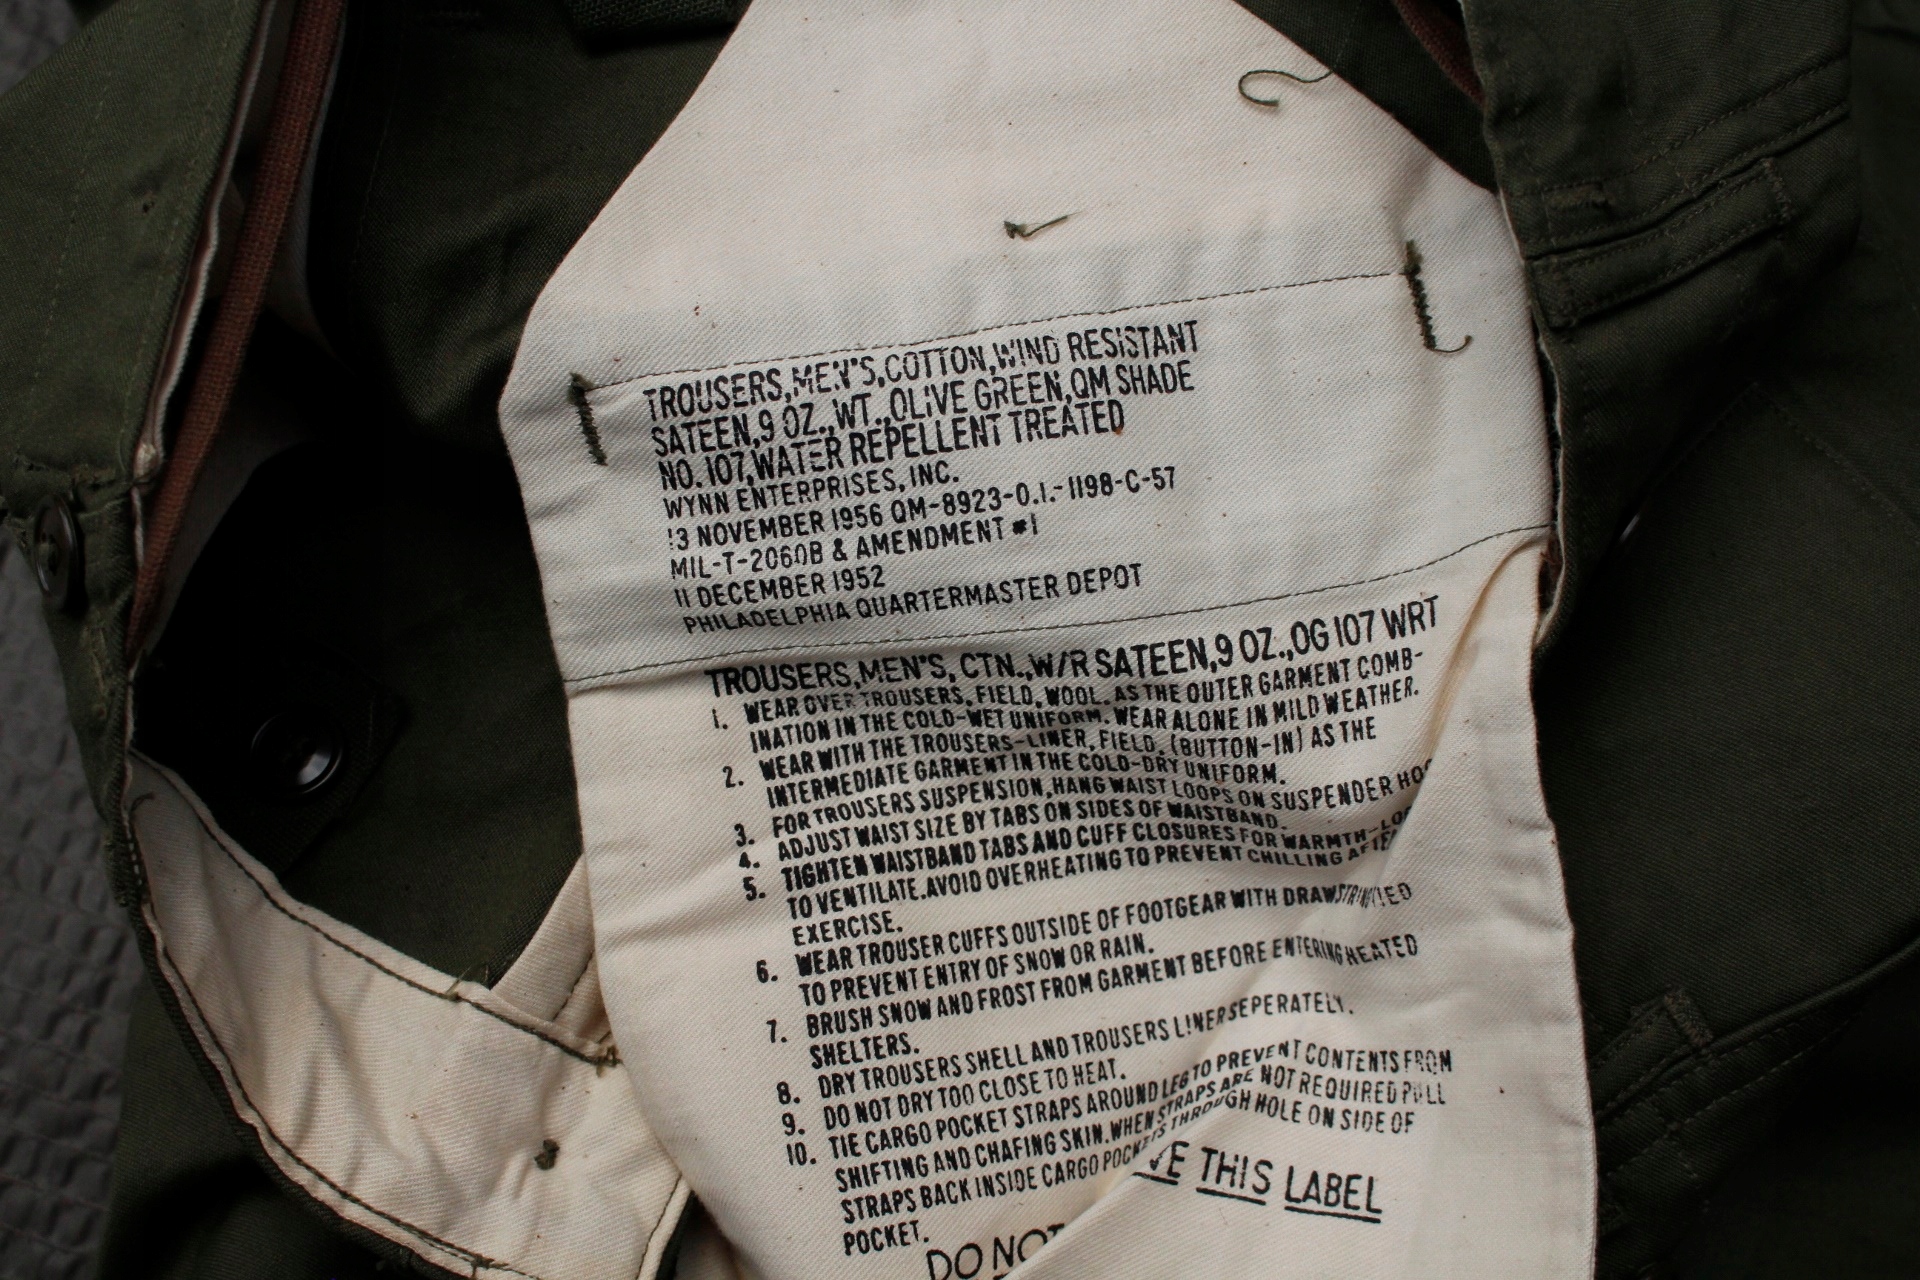 TROUSERS,MEN'S,COTTON,WIND RESISTANT
SATEEN,9 OZ.,WT.,OLIVE GREEN,QM SHADE
NO.107,WATER REPELLENT TREATED
WYNN ENTERPRISES, INC.
13 NOVEMBER 1956 QM-8923-O.I.-1198-C-57
MIL-T-2060B & AMENDMENT #1
11 DECEMBER 1952
PHILADELPHIA QUARTERMASTER DEPOT
TROUSERS,MEN'S, CTN.,W/R SATEEN,9 OZ.,OG 107 WRT
1. WEAR OVER TROUSERS, FIELD, WOOL, AS THE OUTER GARMENT COMB-
INATION IN THE COLD-WET UNIFORM. WEAR ALONE IN MILD WEATHER.
2. WEAR WITH THE TROUSERS-LINER, FIELD, (BUTTON-IN) AS THE
INTERMEDIATE GARMENT IN THE COLD-DRY UNIFORM.
3. FOR TROUSERS SUSPENSION, HANG WAIST LOOPS ON SUSPENDER
4. ADJUST WAIST SIZE BY TABS ON SIDES OF WAISTBAND.
5. TIGHTEN WAISTBAND TABS AND CUFF CLOSURES FOR WARMTH-
TO VENTILATE. AVOID OVERHEATING TO PREVENT CHILLING AFTER
EXERCISE.
6. WEAR TROUSER CUFFS OUTSIDE OF FOOTGEAR WITH DRAWSTRING TIED
TO PREVENT ENTRY OF SNOW OR RAIN.
7. BRUSH SNOW AND FROST FROM GARMENT BEFORE ENTERING HEATED
SHELTERS.
8. DRY TROUSERS SHELL AND TROUSERS LINER SEPERATELY.
9. DO NOT DRY TOO CLOSE TO HEAT.
10. TIE CARGO POCKET STRAPS AROUND LEG TO PREVENT CONTENTS FROM
SHIFTING AND CHAFING SKIN. WHEN STRAPS ARE NOT REQUIRED PULL
STRAPS BACK INSIDE CARGO POCKETS THROUGH HOLE ON SIDE OF
POCKET.
DO NOT THIS LABEL